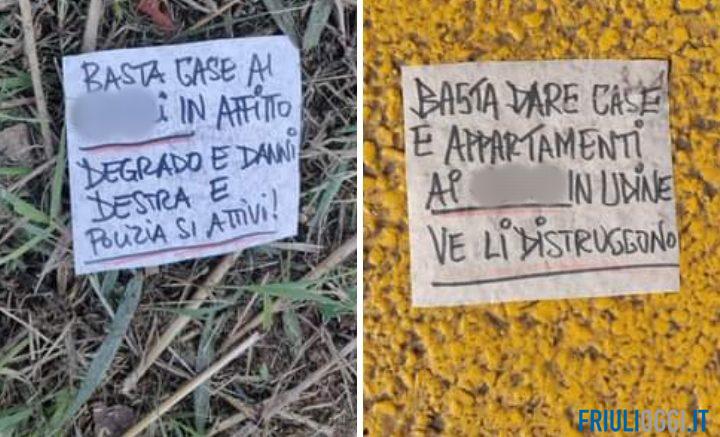 BASTA CASE AI
i IN AFFITTO
DEGRADO E DANNI
DESTRA E
POLIZIA SI ATTIVI!
BASTA DARE CASE
E APPARTAMENTI
AI IN UDINE
VE LI DISTRUGGONO
FRIULIOGGI.IT